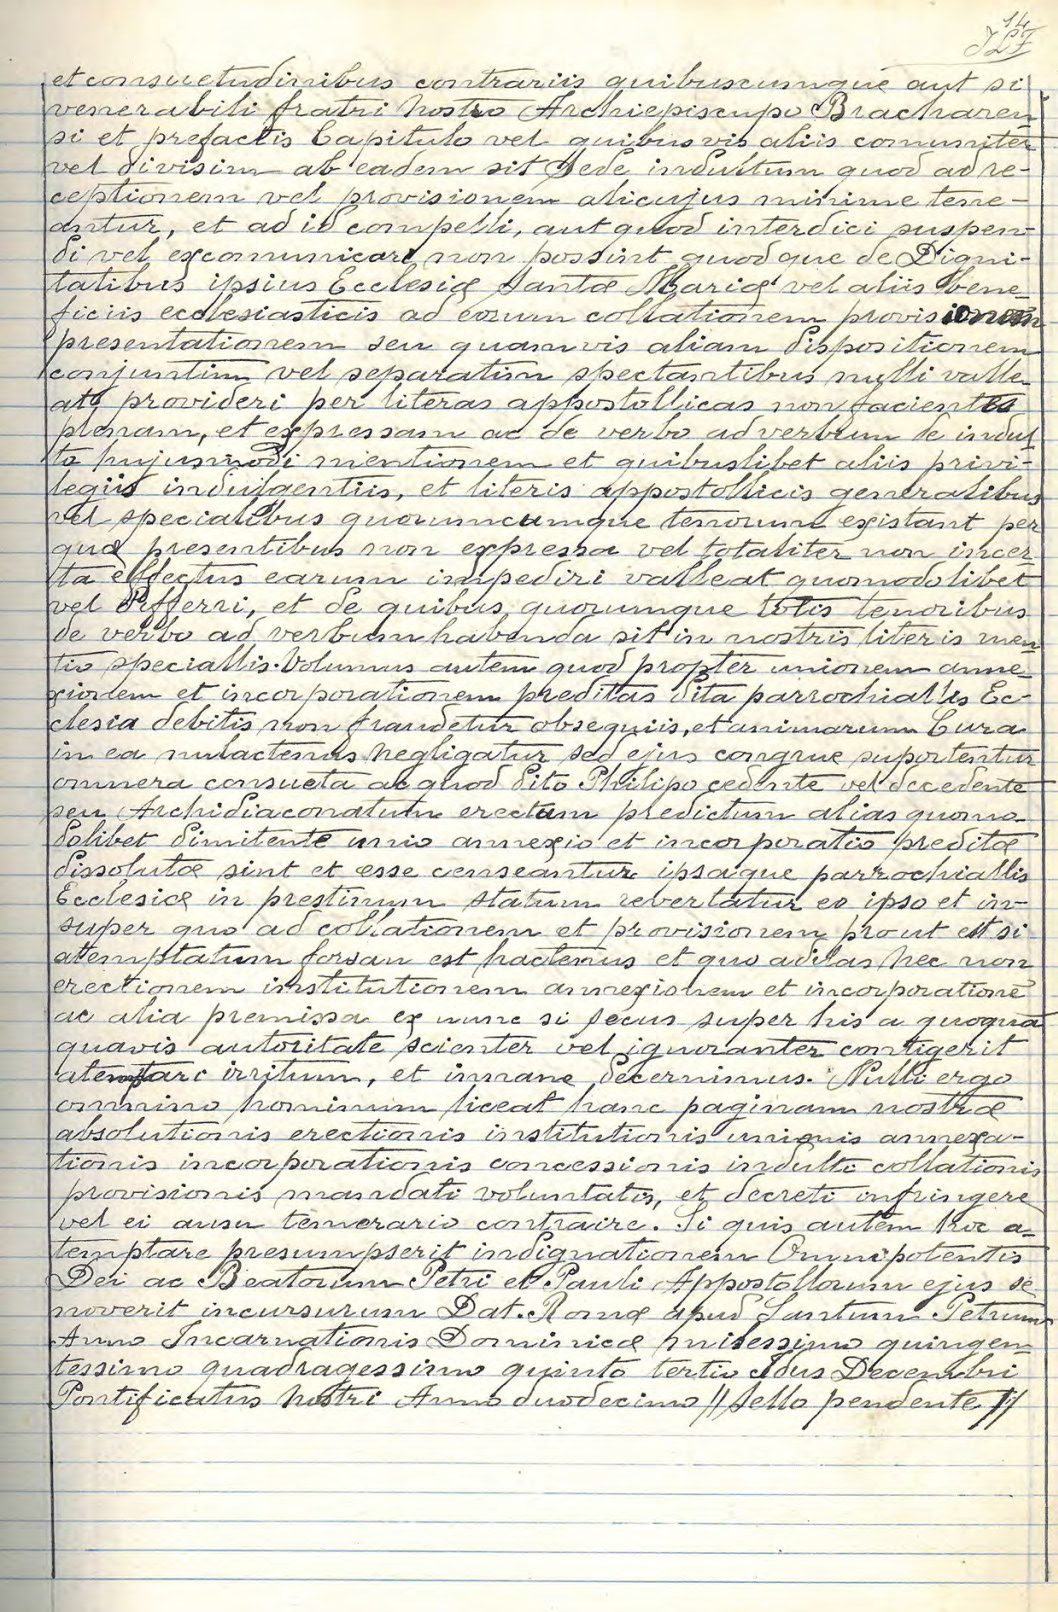 14
et consuetudinibus contrariis quibuscumque aut si
venerabili fratri Nostro Archiepiscupo Bracharen
si et prefactis Capitulo vel quibusvis aliis comuniter
vel divisim ab eadem sit Sede indultum quod ad re-
ceptionem vel provisionem alicujus minime tene-
antur, et ad id compelli, aut quod interdici suspen-
di vel excomunicari non possint quod que de Digni-
tatibus ipsius Ecclesiæ Santæ Mariæ vel aliis bene-
ficiis ecclesiasticis ad eorum collationem provisionem
presentationem seu quamvis aliam dispositionem
conjuntim vel separatim spectantibus nulli valle-
at provideri per literas appostollicas non facientes
plenam, et expressam ac de verbo ad verbum de indul
to hujusmodi mentionem et quibuslibet aliis privi-
legiis indulgentiis, et literis appostollicis generalibus
vel specialibus quorumcumque tenorum existant per
quæ presentibus non expressa vel totaliter non incer
ta effectus earum impediri valleat quomodolibet
vel differri, et de quibus, quorumque totis tenoribus
de verbo ad verbum habenda sit in nostris literis men
tio speciallis. Volumus autem quod propter unionem anne-
xionem et incorporationem preditas dita parrochiallis Ec-
clesia debitis non fraudetur obsequiis, et animarum Cura
in ea nulactenus negligatur sed ejus congrue suportentur
onnera consueta ac quod dito Philipo cedente vel decedente
seu Archidiaconatum erectum predictum alias quomo-
dolibet dimitente unio annexio et incorporatio preditæ
dissolutæ sint et esse censeantur ipsaque parrochiallis
Ecclesiæ in prestinum statum revertatur eo ipso et in-
super quo ad collationem et provisionem prout est si
atemptatum forsan est hactenus et quo ad ilas nec non
erectionem institutionem annexionem et incorporatione
ac alia premissa ex nunc si secus super his a quoqua
quavis autoritate scienter vel ignoranter contigerit
atemptare irritum, et innane decernimus. Nulli ergo
omnino hominum liceat hanc paginam nostræ
absolutionis erectionis institutionis unionis annexa-
tionis incorporationis concessionis indulti collationis
provisionis mandati voluntatis, et decreti infringere
vel ei ausu temerario contraire. Si quis autem hoc a-
temptare presumpserit indignationem Omnipotentis
Dei ac Beatorum Petri et Pauli Appostollorum ejus se
noverit incursurum Dat. Romæ apud Santum Petrum
Anno Incarnationis Dominicæ milessimo quingen
tessimo quadragessimo quinto tertio Idus Decembri
Pontificatus Nostri Anno duodecimo // Sello pendente //